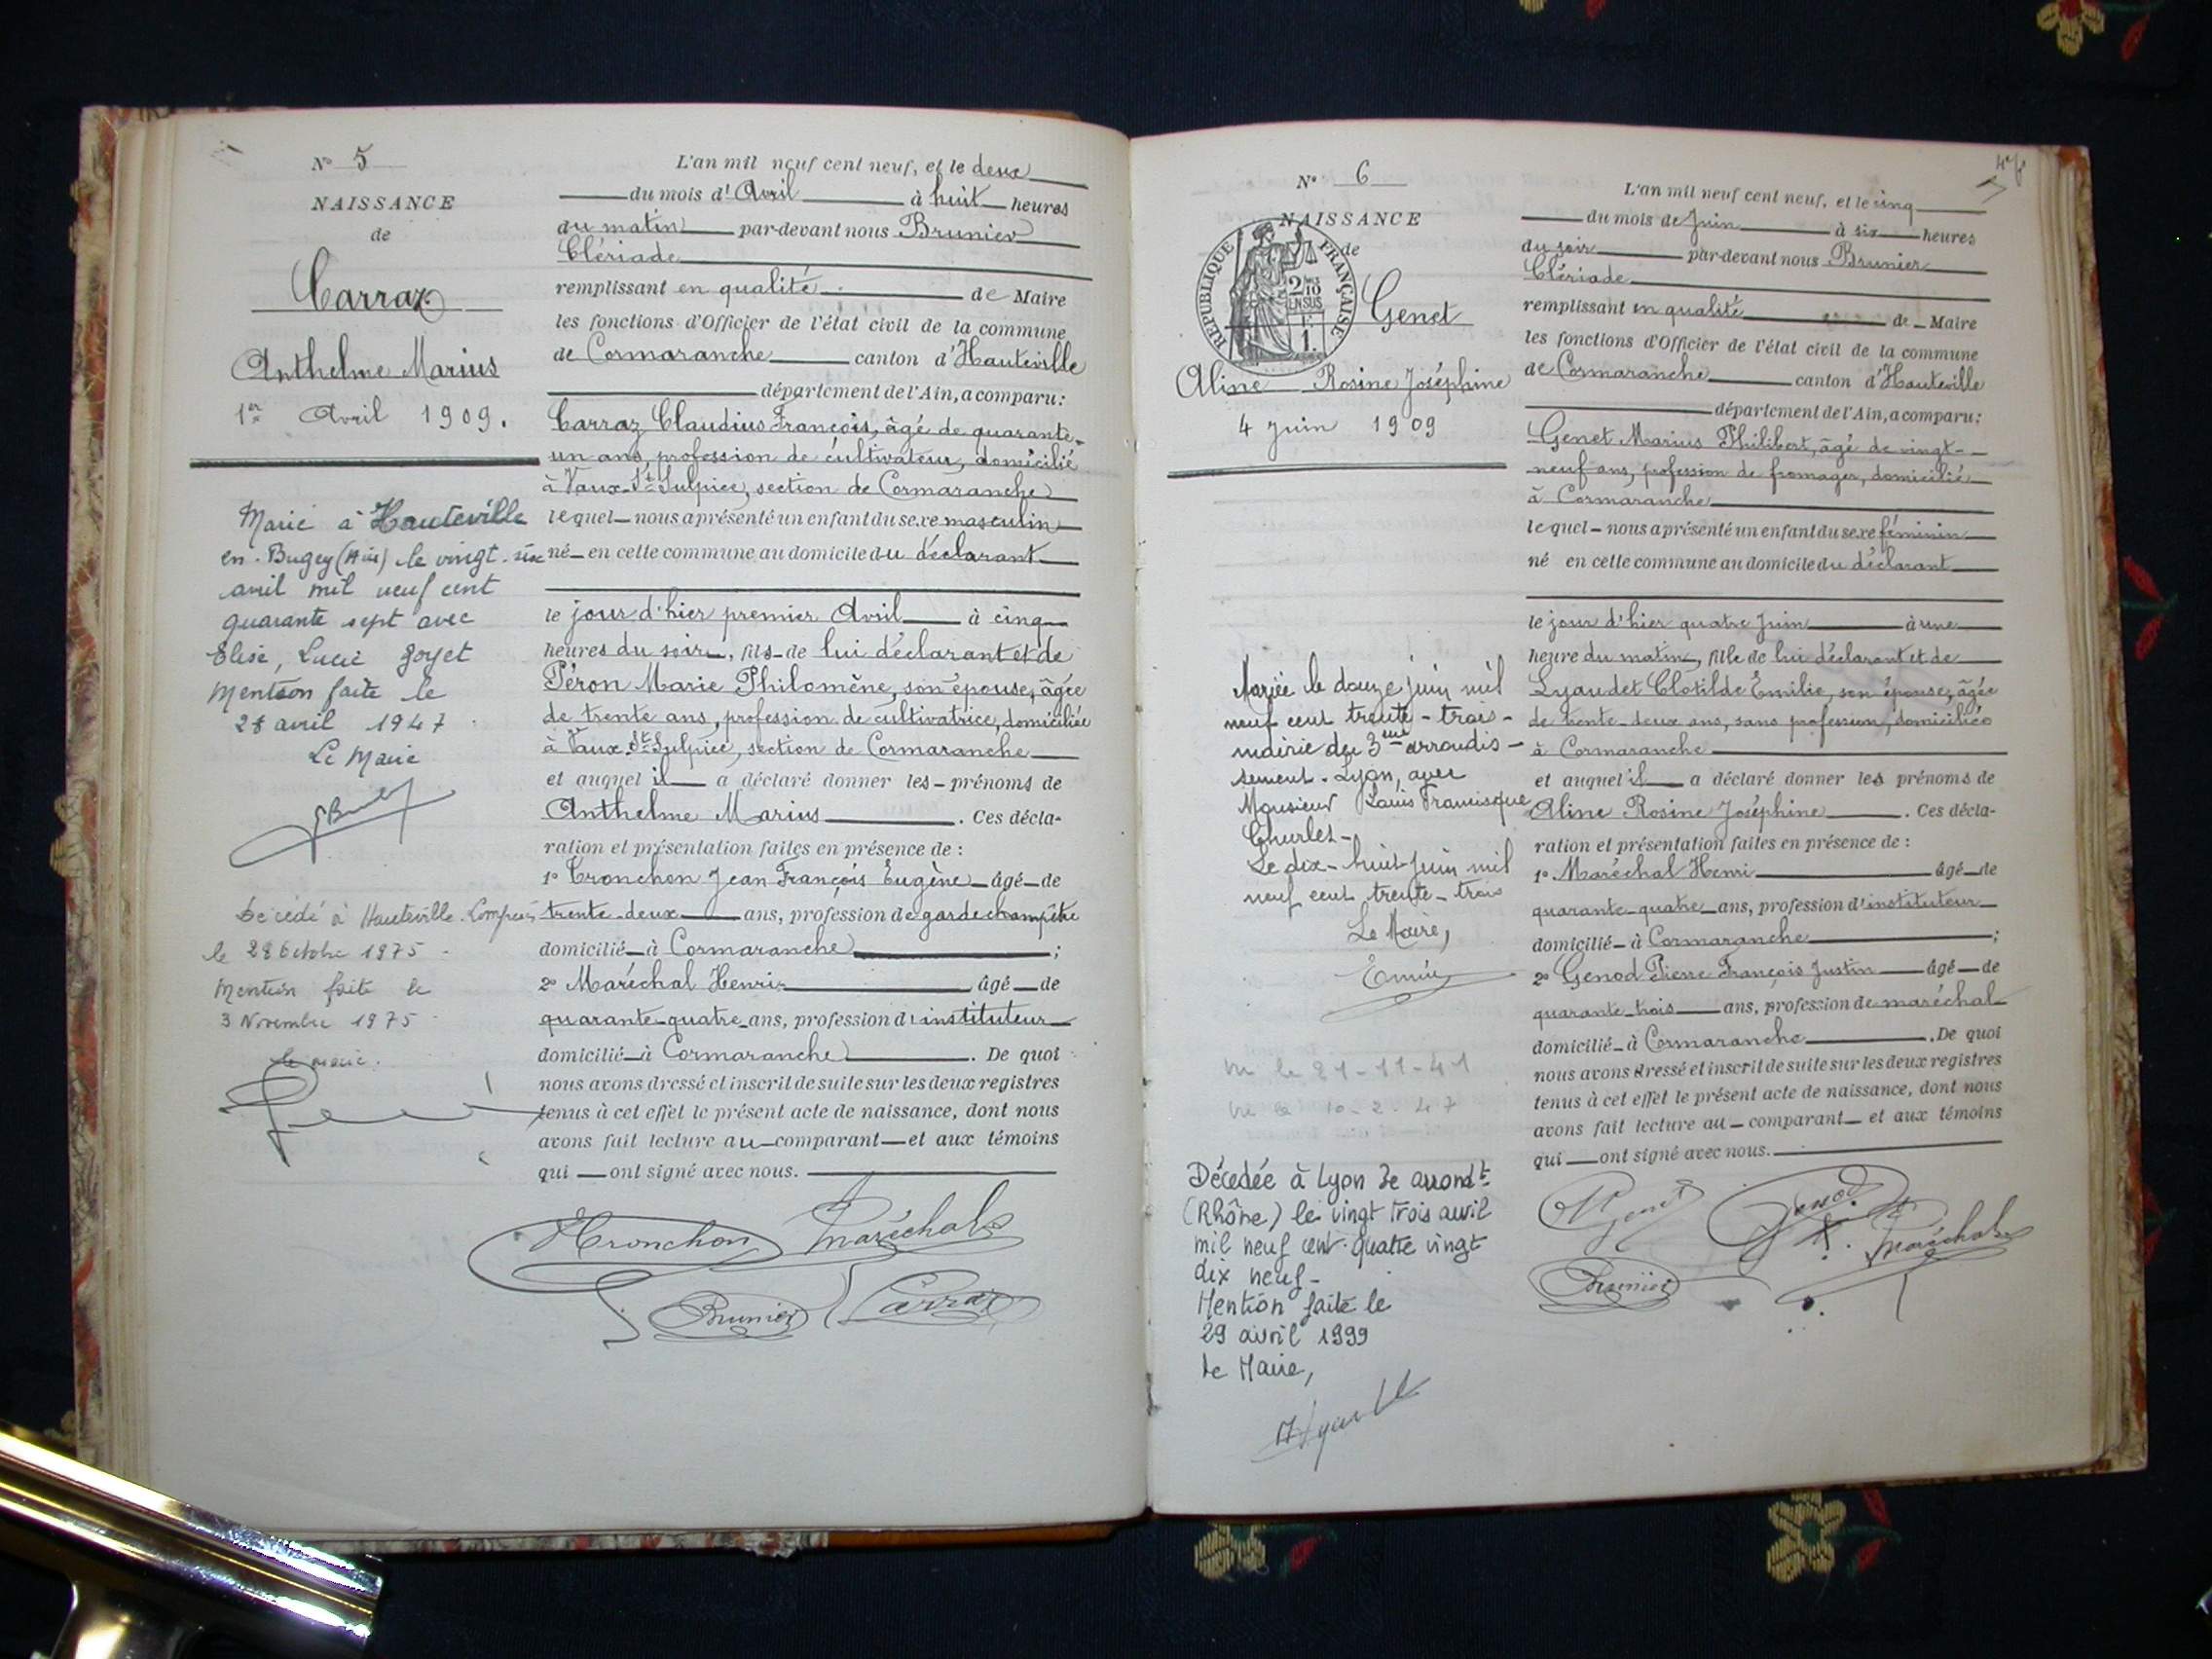 N° 5
NAISSANCE
de
Carraz
Anthelme Marius
1er Avril 1909.
Marié à Hauteville
en-Bugey (Ain) le vingt-six
avril mil neuf cent
quarante sept avec
Elise, Lucie Goyet
Mention faite le
28 avril 1947
Le Maire
Décédé à Hauteville-Lompnes
le 28 Octobre 1975
Mention faite le
3 Novembre 1975
le maire.
L'an mil neuf cent neuf, et le deux
du mois d'Avril à huit heures
du matin par-devant nous Brunier
Clériade
remplissant en qualité de Maire
les fonctions d'Officier de l'état civil de la commune
de Cormaranche canton d'Hauteville
département de l'Ain, a comparu:
Carraz Claudius François, âgé de quarante-
un ans, profession de cultivateur, domicilié
à Vaux-St-Sulpice, section de Cormaranche
lequel nous a présenté un enfant du sexe masculin
né en cette commune au domicile du déclarant
le jour d'hier premier Avril à cinq
heures du soir, fils de lui déclarant et de
Péron Marie Philomène, son épouse, âgée
de trente ans, profession de cultivatrice, domiciliée
à Vaux-St-Sulpice, section de Cormaranche
et auquel il a déclaré donner les prénoms de
Anthelme Marius. Ces décla-
ration et présentation faites en présence de :
1° Tronchon Jean François Eugène âgé de
trente-deux ans, profession de garde champêtre
domicilié à Cormaranche ;
2° Maréchal Henri âgé de
quarante-quatre ans, profession d'instituteur
domicilié à Cormaranche. De quoi
nous avons dressé et inscrit de suite sur les deux registres
tenus à cet effet le présent acte de naissance, dont nous
avons fait lecture au comparant et aux témoins
qui ont signé avec nous.
Tronchon Maréchal
Brunier Carraz
N° 6
NAISSANCE
de
REPUBLIQUE FRANÇAISE
2/10
EN SUS
1.
Genet
Aline Rosine Joséphine
4 Juin 1909
Mariée le douze juin mil
neuf cent trente-trois-
mairie du 3eme arrondis-
sement-Lyon, avec
Monsieur Louis Francisque
Le dix-huit juin mil
neuf cent trente-trois
Le Maire,
Vu le 21-11-41
Vu le 10-2-47
Décédée à Lyon 3e arrondt
(Rhône) le vingt trois avril
mil neuf cent quatre vingt
dix neuf-
Mention faite le
29 avril 1999
Le Maire,
L'an mil neuf cent neuf, et le cinq
du mois de Juin à six heures
du soir par-devant nous Brunier
Clériade
remplissant en qualité de Maire
les fonctions d'Officier de l'état civil de la commune
de Cormaranche canton d'Hauteville
département de l'Ain, a comparu:
Genet Marius Philibert, âgé de vingt-
neuf ans, profession de fromager, domicilié
à Cormaranche
lequel nous a présenté un enfant du sexe féminin
né en cette commune au domicile du déclarant
le jour d'hier quatre Juin à une
heure du matin, fille de lui déclarant et de
Lyaudet Clotilde Emilie, son épouse, âgée
de trente-deux ans, sans profession, domiciliée
à Cormaranche
et auquel il a déclaré donner les prénoms de
Aline Rosine Joséphine. Ces décla-
ration et présentation faites en présence de :
1° Maréchal Henri âgé de
quarante-quatre ans, profession d'instituteur
domicilié à Cormaranche ;
2° Genod Pierre François Justin âgé de
quarante-trois ans, profession de maréchal
domicilié à Cormaranche. De quoi
nous avons dressé et inscrit de suite sur les deux registres
tenus à cet effet le présent acte de naissance, dont nous
avons fait lecture au comparant et aux témoins
qui ont signé avec nous.
Genet Genod
Maréchal
Brunier